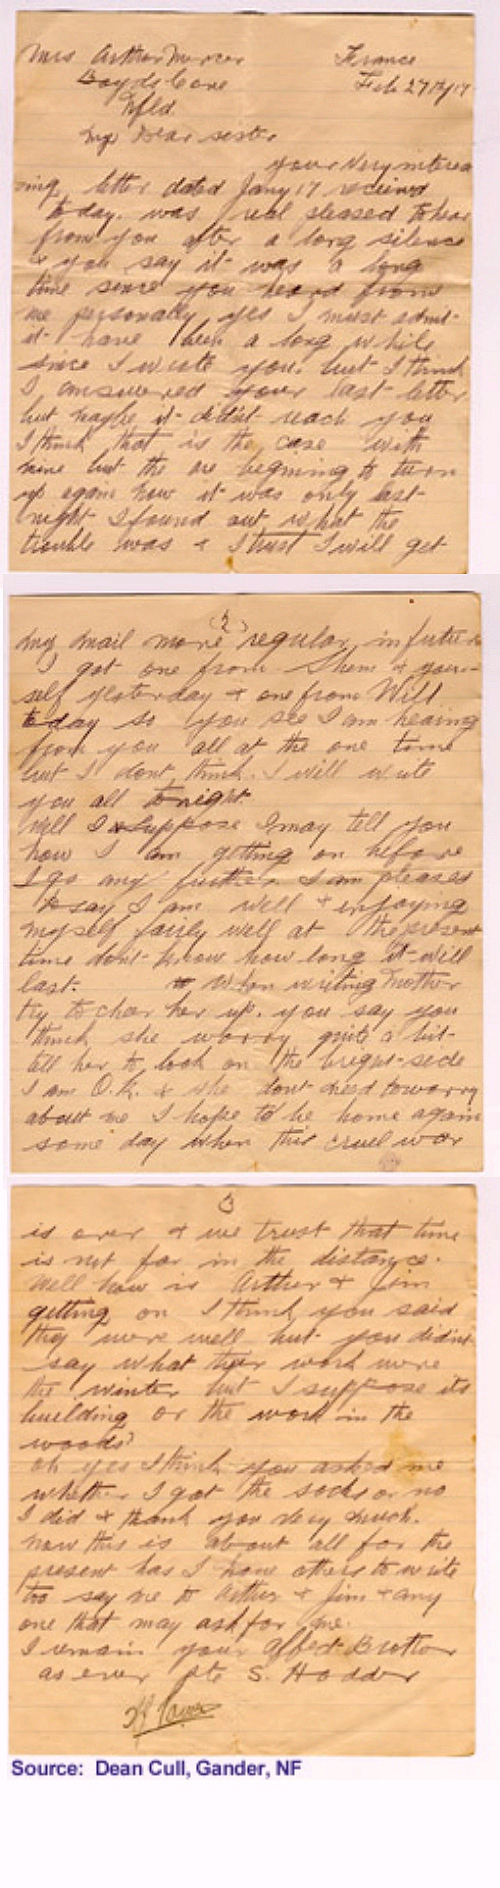 Mrs Arthur Mercer France
Boyds Cove Feb 27th/17
Nfld.
My Dear sister
your very interes
ting letter dated Jany 17 received
today. was real pleased to hear
from you after a long silence
& you say it was a long
time since you heard from
me personally yes I must admit
it have been a long while
since I wrote you. but I think
I answered your last letter
but maybe it didn't reach you
I think that is the case with
mine but the are begning to turn
up again now it was only last
night I found out what the
trouble was & I trust I will get
(2)
my mail more regular in future
I got one from Shem & your-
self yesterday & one from Will
today so you see I am hearing
from you all at the one time
but I dont think I will write
you all tonight.
Well I suppose I may tell you
how I am getting on before
I go any further. I am pleased
to say I am well & enjoying
myself fairly well at the present
time dont know how long it will
last. When writing Mother
try to chear her up. you say you
think she worry quite a bit
tell her to look on the bright side
I am O.K. & she dont need to worry
about me I hope to be home again
some day when this cruel war
3
is over & we trust that time
is not far in the distance.
Well how is Arthur & Jim
getting on I think you said
they were well but you didnt
say what their work were
the winter but I suppose its
building or the work in the
woods?
oh yes I think you asked me
whether I got the socks or no
I did & thank you very much.
now this is about all for the
present has I have others to write
too say me to Arthur & Jim & any
one that may ask for me.
I remain your affect. Brother
as ever pte S. Hodder
Source: Dean Cull, Gander, NF